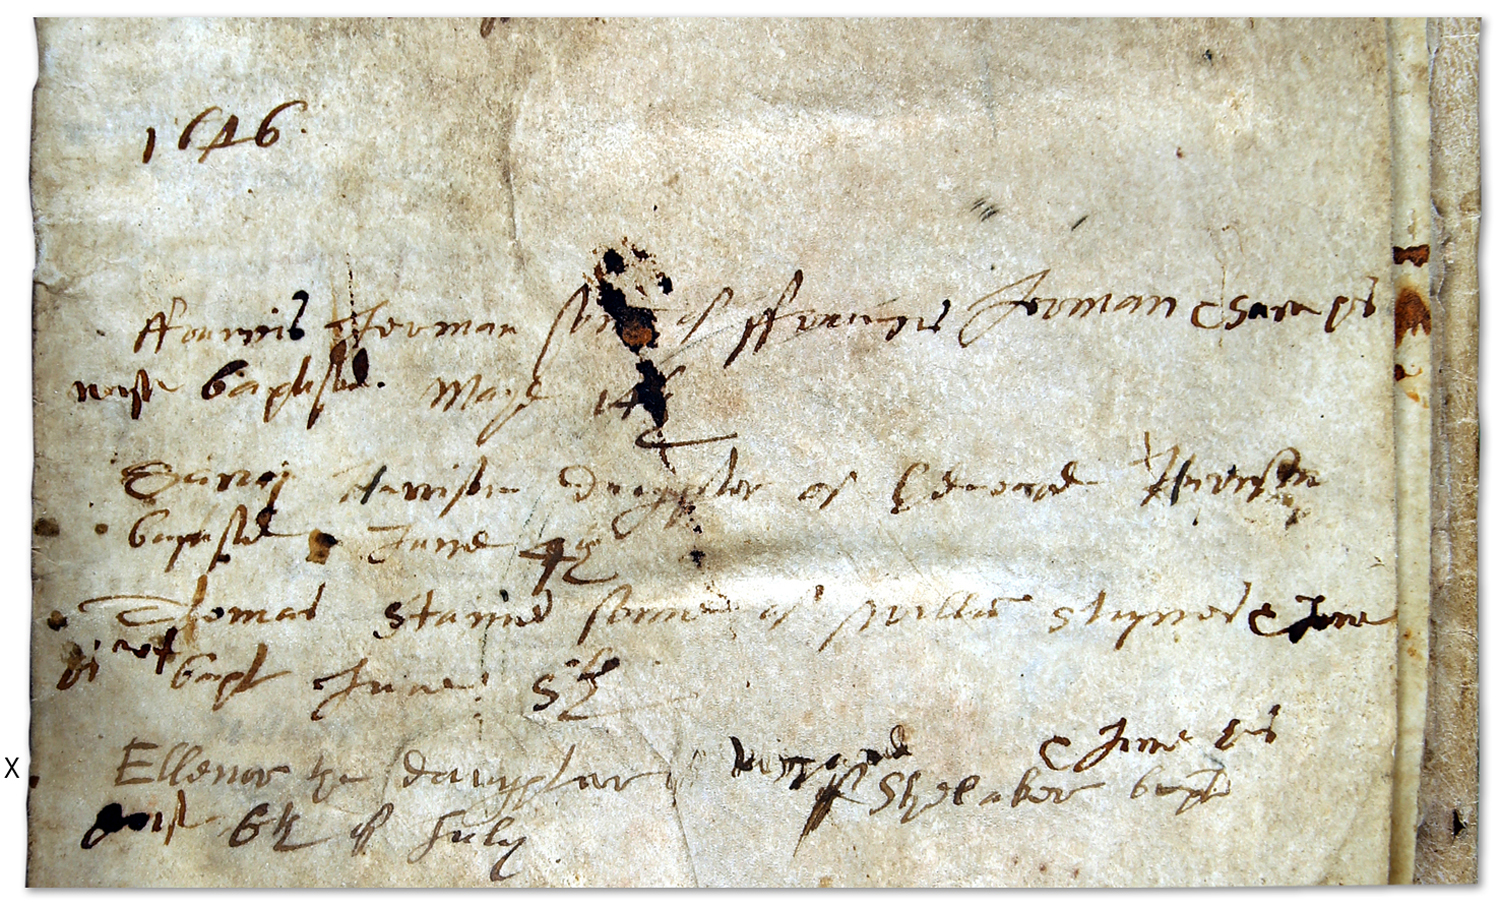 1646.
ffrancis Jerman sonn of ffrancis Jerman & Sara his
wife baptised. Maye 14
Harrison daughter of Edward Harrison
baptised June 4th
Thomas Staines sonne of Willm Stynes & Jane
his wif bapt June 5th
Ellenor the daughter Richard & Jane his
ff Shelaker bapt
wife 6th of July
X